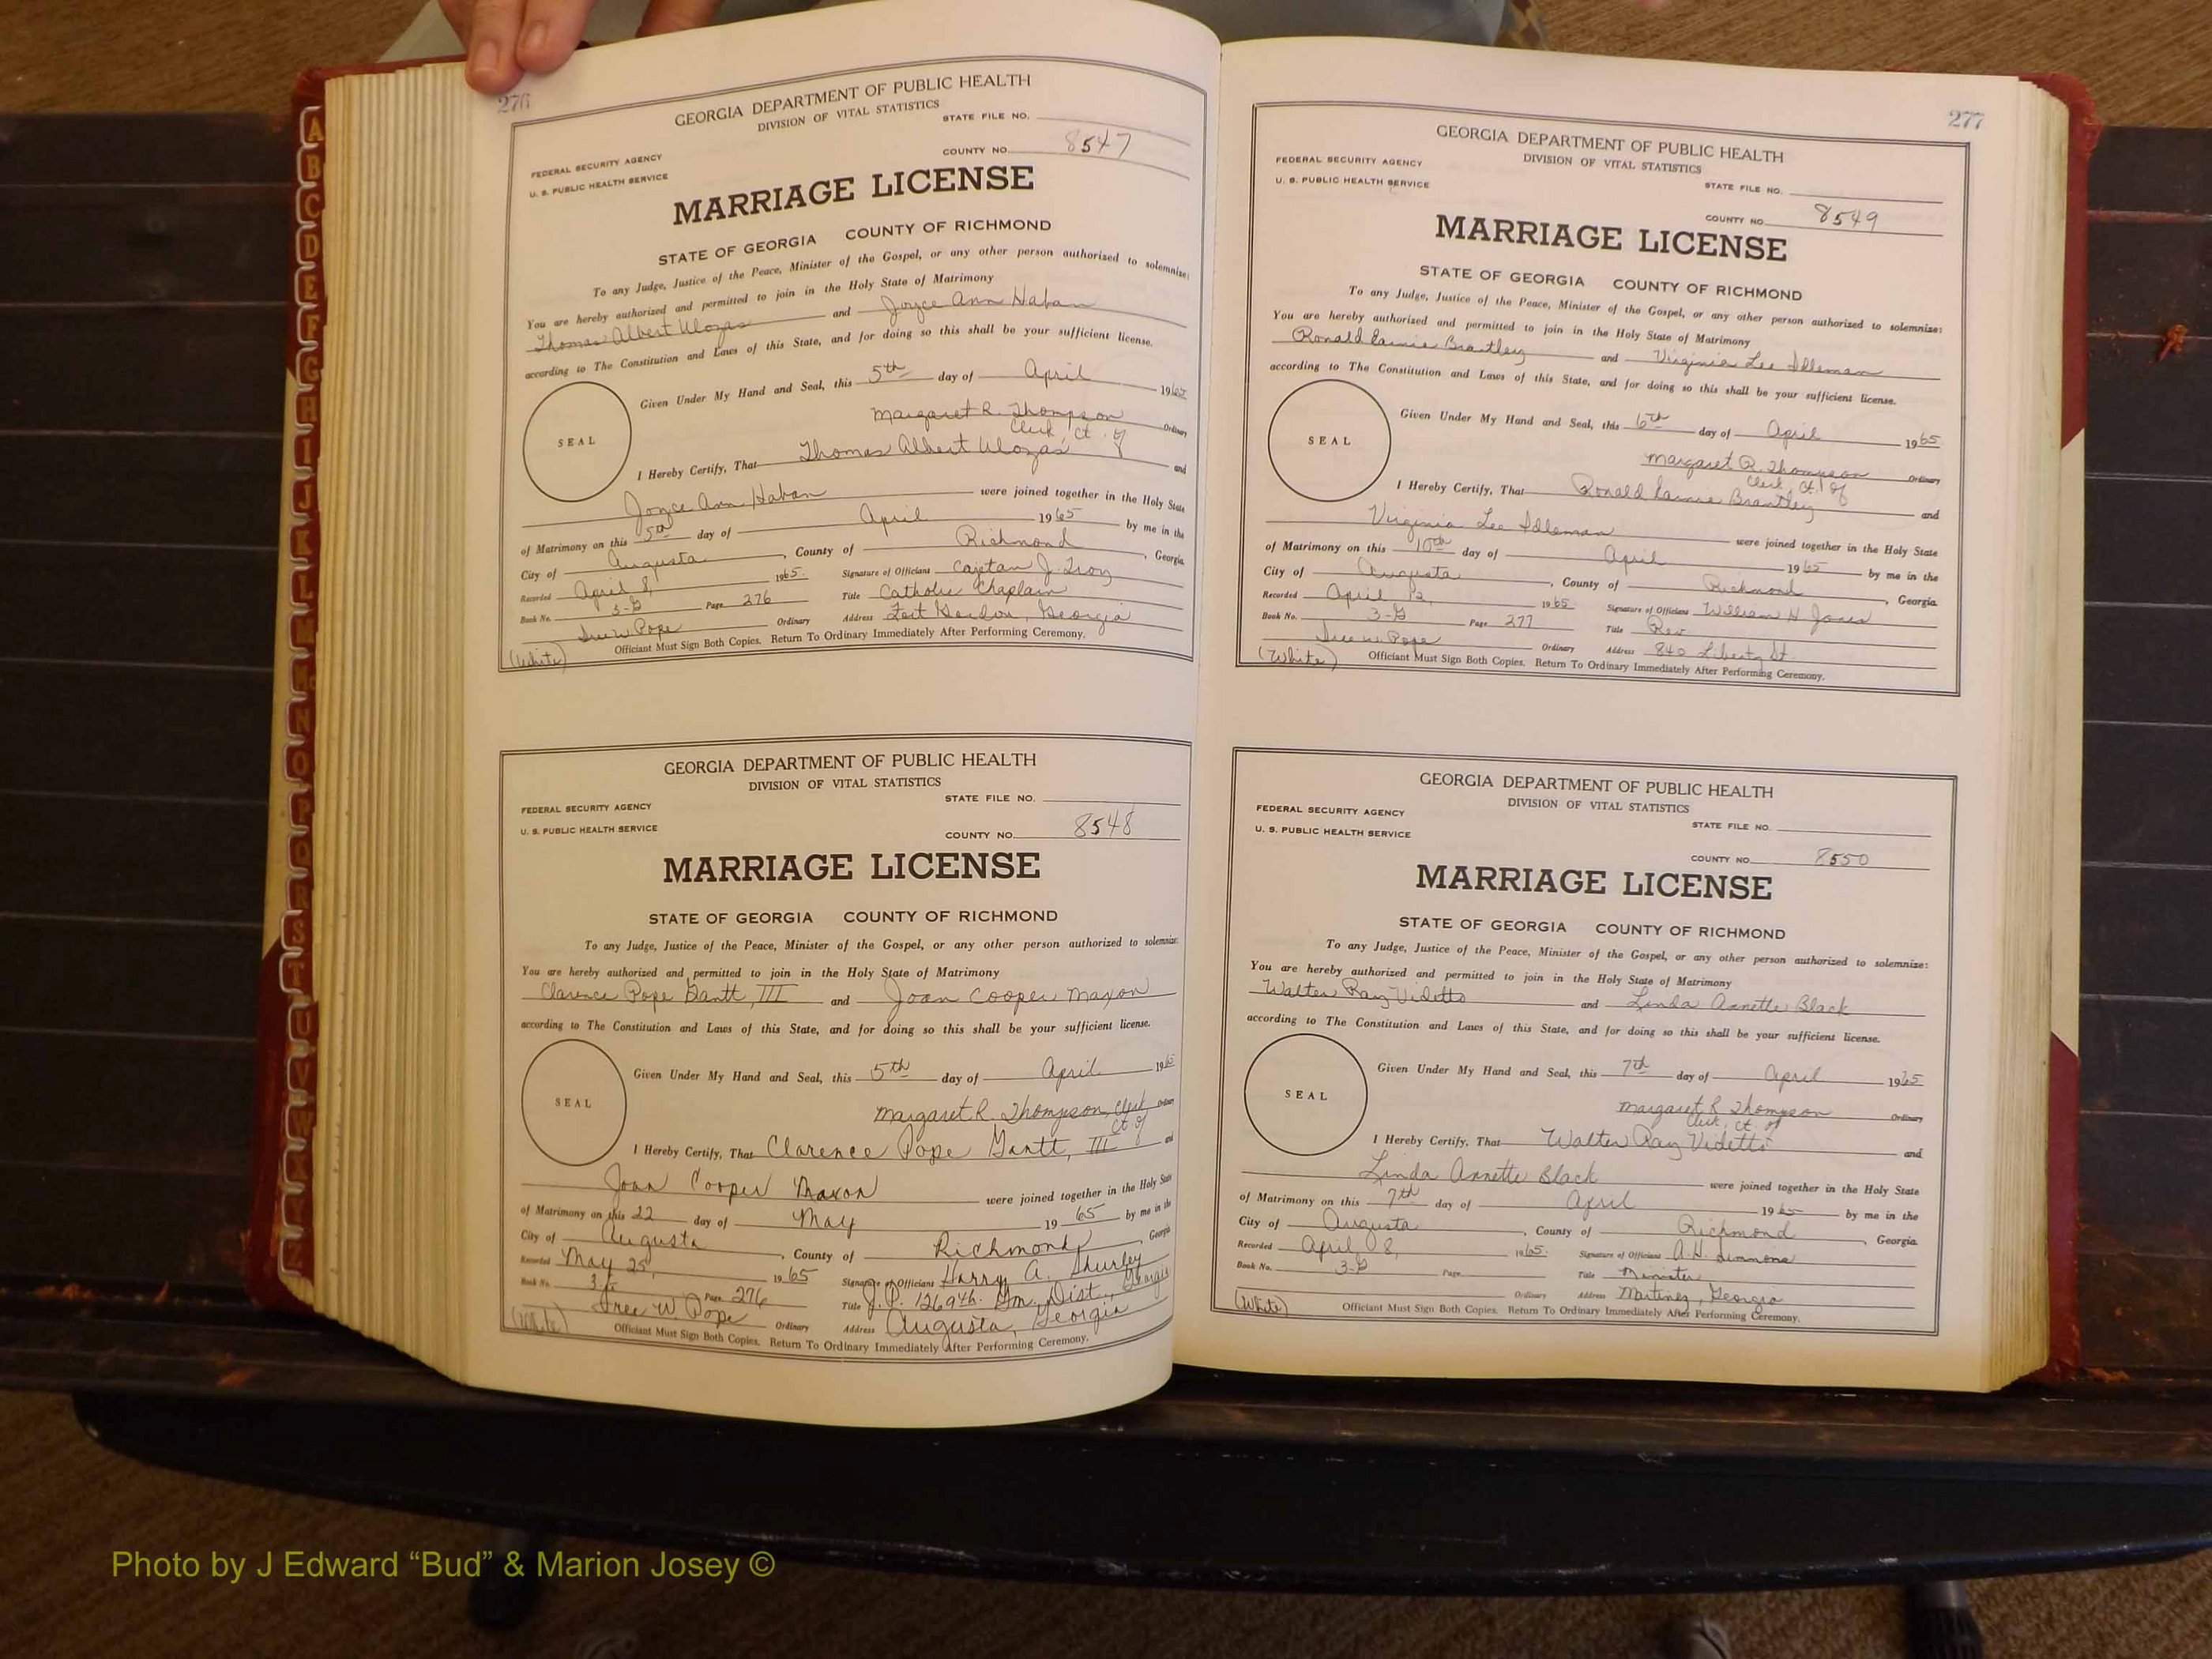 276
GEORGIA DEPARTMENT OF PUBLIC HEALTH
DIVISION OF VITAL STATISTICS
STATE FILE NO.
FEDERAL SECURITY AGENCY
COUNTY NO. 8547
U. S. PUBLIC HEALTH SERVICE
MARRIAGE LICENSE
STATE OF GEORGIA COUNTY OF RICHMOND
To any Judge, Justice of the Peace, Minister of the Gospel, or any other person authorized to solemnize:
You are hereby authorized and permitted to join in the Holy State of Matrimony
Thomas Albert Ulozas and Joyce Ann Haban
according to The Constitution and Laws of this State, and for doing so this shall be your sufficient license.
Given Under My Hand and Seal, this 5th day of April 1965
Margaret R. Thompson Ordinary
Clerk, Ct. of
SEAL
I Hereby Certify, That Thomas Albert Ulozas and
Joyce Ann Haban were joined together in the Holy State
of Matrimony on this 5th day of April 1965 by me in the
City of Augusta, County of Richmond, Georgia
Recorded April 8, 1965. Signature of Officiant Cajetan J. Troy
Book No. 3-G Page 276 Title Catholic Chaplain
W. Pope Ordinary Address Fort Gordon, Georgia
(White) Officiant Must Sign Both Copies. Return To Ordinary Immediately After Performing Ceremony.
GEORGIA DEPARTMENT OF PUBLIC HEALTH
DIVISION OF VITAL STATISTICS
STATE FILE NO.
FEDERAL SECURITY AGENCY
U. S. PUBLIC HEALTH SERVICE
COUNTY NO. 8548
MARRIAGE LICENSE
STATE OF GEORGIA COUNTY OF RICHMOND
To any Judge, Justice of the Peace, Minister of the Gospel, or any other person authorized to solemnize:
You are hereby authorized and permitted to join in the Holy State of Matrimony
Clarence Pope Gantt, III and Joan Cooper Maxon
according to The Constitution and Laws of this State, and for doing so this shall be your sufficient license.
Given Under My Hand and Seal, this 5th day of April 1965
Margaret R. Thompson, Clerk Ordinary
Ct. of
SEAL
I Hereby Certify, That Clarence Pope Gantt, III and
Joan Cooper Maxon were joined together in the Holy State
of Matrimony on this 22 day of May 1965 by me in the
City of Augusta, County of Richmond, Georgia
Recorded May 25, 1965 Signature of Officiant Harry A. Shurley
Book No. Page 276 Title J.P. 1269th. Gm. Dist., Georgia
W. Pope Ordinary Address Augusta, Georgia
(White) Officiant Must Sign Both Copies. Return To Ordinary Immediately After Performing Ceremony.
277
GEORGIA DEPARTMENT OF PUBLIC HEALTH
DIVISION OF VITAL STATISTICS
FEDERAL SECURITY AGENCY
U. S. PUBLIC HEALTH SERVICE
STATE FILE NO.
COUNTY NO. 8549
MARRIAGE LICENSE
STATE OF GEORGIA COUNTY OF RICHMOND
To any Judge, Justice of the Peace, Minister of the Gospel, or any other person authorized to solemnize:
You are hereby authorized and permitted to join in the Holy State of Matrimony
Ronald Lannie Brantley and Virginia Lee Idleman
according to The Constitution and Laws of this State, and for doing so this shall be your sufficient license.
Given Under My Hand and Seal, this 6th day of April 1965
Margaret R. Thompson Ordinary
Clerk, Ct. of
SEAL
I Hereby Certify, That Ronald Lannie Brantley and
Virginia Lee Idleman were joined together in the Holy State
of Matrimony on this 10th day of April 1965 by me in the
City of Augusta, County of Richmond, Georgia.
Recorded April 12, 1965 Signature of Officiant William H Jones
Book No. 3-G Page 277 Title Rev
W. Pope Ordinary Address 840 Liberty St.
(White) Officiant Must Sign Both Copies. Return To Ordinary Immediately After Performing Ceremony.
GEORGIA DEPARTMENT OF PUBLIC HEALTH
DIVISION OF VITAL STATISTICS
FEDERAL SECURITY AGENCY
STATE FILE NO.
U. S. PUBLIC HEALTH SERVICE
COUNTY NO. 8550
MARRIAGE LICENSE
STATE OF GEORGIA COUNTY OF RICHMOND
To any Judge, Justice of the Peace, Minister of the Gospel, or any other person authorized to solemnize:
You are hereby authorized and permitted to join in the Holy State of Matrimony
Walter Ray Videtto and Linda Annette Black
according to The Constitution and Laws of this State, and for doing so this shall be your sufficient license.
Given Under My Hand and Seal, this 7th day of April 1965
Margaret R Thompson Ordinary
Clerk, Ct. of
SEAL
I Hereby Certify, That Walter Ray Videtto and
Linda Annette Black were joined together in the Holy State
of Matrimony on this 7th day of April 1965 by me in the
City of Augusta, County of Richmond, Georgia.
Recorded April 8, 1965. Signature of Officiant A.H. Simmons
Book No. 3-G Page Title Minister
Ordinary Address Martinez, Georgia
(White) Officiant Must Sign Both Copies. Return To Ordinary Immediately After Performing Ceremony.
A
B
C
D
E
F
G
H
I
J
K
L
M
Mc
N
O
P
Q
R
S
T
U
V
W
X
Y
Z
Photo by J Edward “Bud” & Marion Josey ©